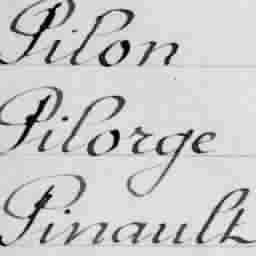 Pilon
Pilorge
Pinault